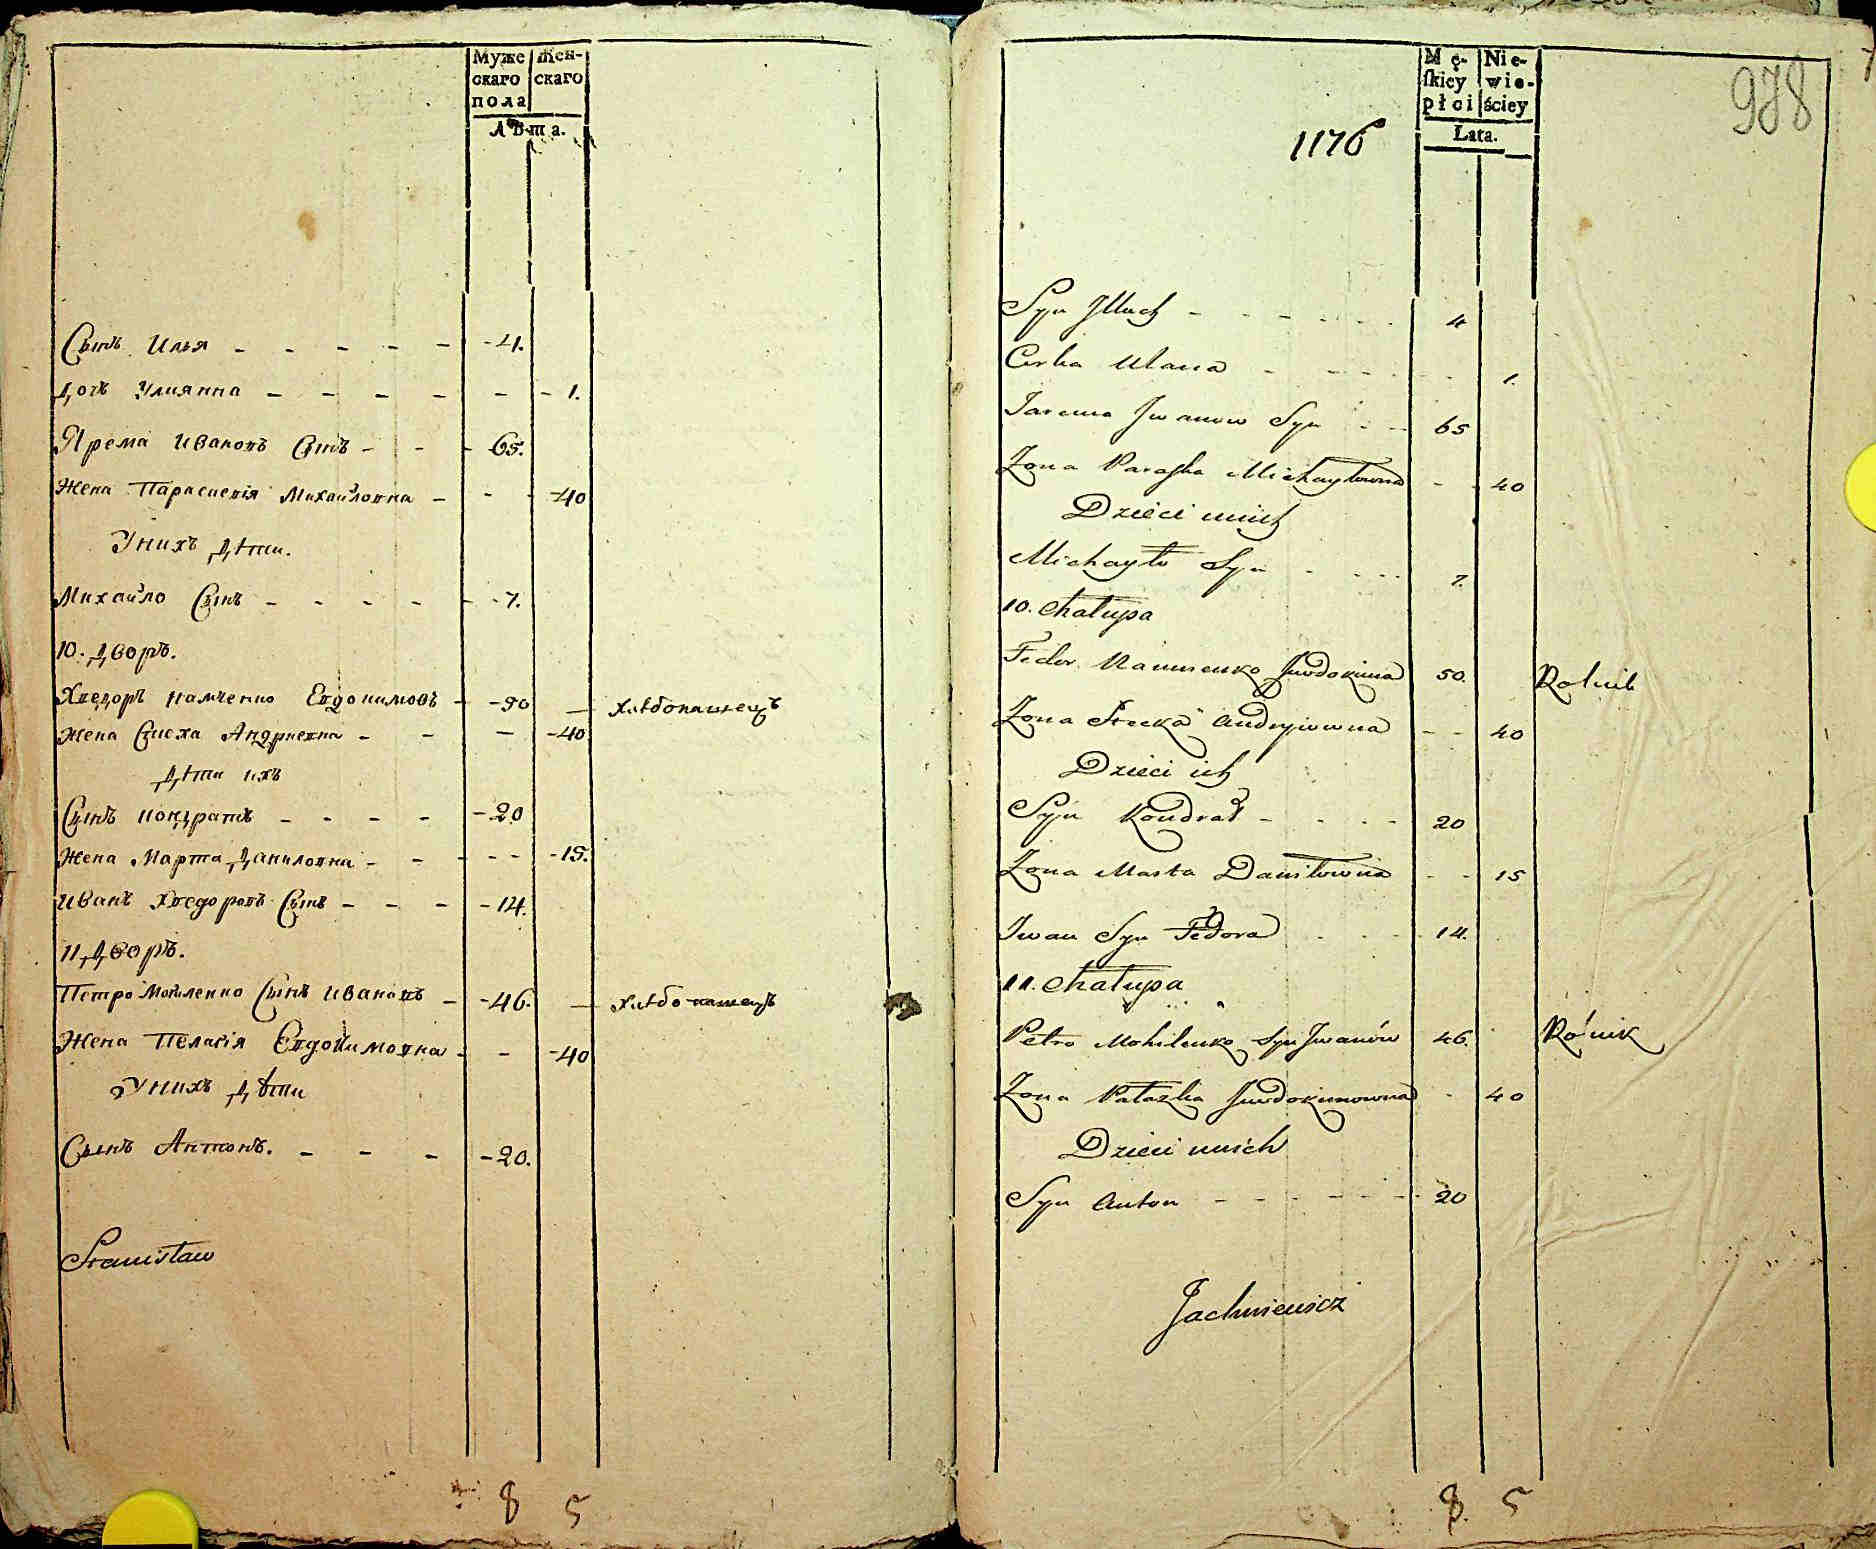 Муже Жен-
скаго скаго
пола
Лѣта.
Сынъ Илья - - - - - -4.
Дочь Улиянна - - - - - - 1.
Ярема Ивановъ Сынъ - - - 65.
Жена Параскевія Михайловна - - - -40
Унихъ Дѣти.
Михайло Сынъ - - - - - -7.
10. Дворъ.
Хведоръ Намченко Евдокимовъ - -50 — хлѣбопашецъ
Жена Андриевна - - — -40
Дѣти ихъ
Сынъ Кондратъ - - - - -20
Жена Марта Даниловна - - - - - -15.
Иванъ Хведоровъ Сынъ - - - -14.
11 Дворъ.
Петро Могиленко Сынъ Ивановъ - -46. — хлѣбопашецъ
Жена Пелагія Евдокимовна - - -40
Унихъ Дѣти
Сынъ Антонъ. - - - -20.
Stanisław
8 5
978
Mę- Nie-
skiey wie-
płci ściey
Lata.
1176
Syn Illuch - - - - - - 4
Corka Ulana - - - - - - 1.
Jarema Jwanow Syn - - - 65
Zona Paraska Michayłowna - - 40
Dzieci unich
Michayło Syn - - - - 7.
10. Chałupa
Fedor Namczenko Juwdokima 50. Rolnik
Zona Andryiowna - - 40
Dzieci ich
Syn Kondrat - - - - 20
Zona Marta Daniłowna - - 15
Jwan Syn Fedora - - - 14.
11. Chałupa
Petro Mohilenko Syn Jwanów 46. Rolnik
Zona Pałazka Juwdokimowna - 40
Dzieci unich
Syn Anton - - - - - - 20
Jachniewicz
8. 5